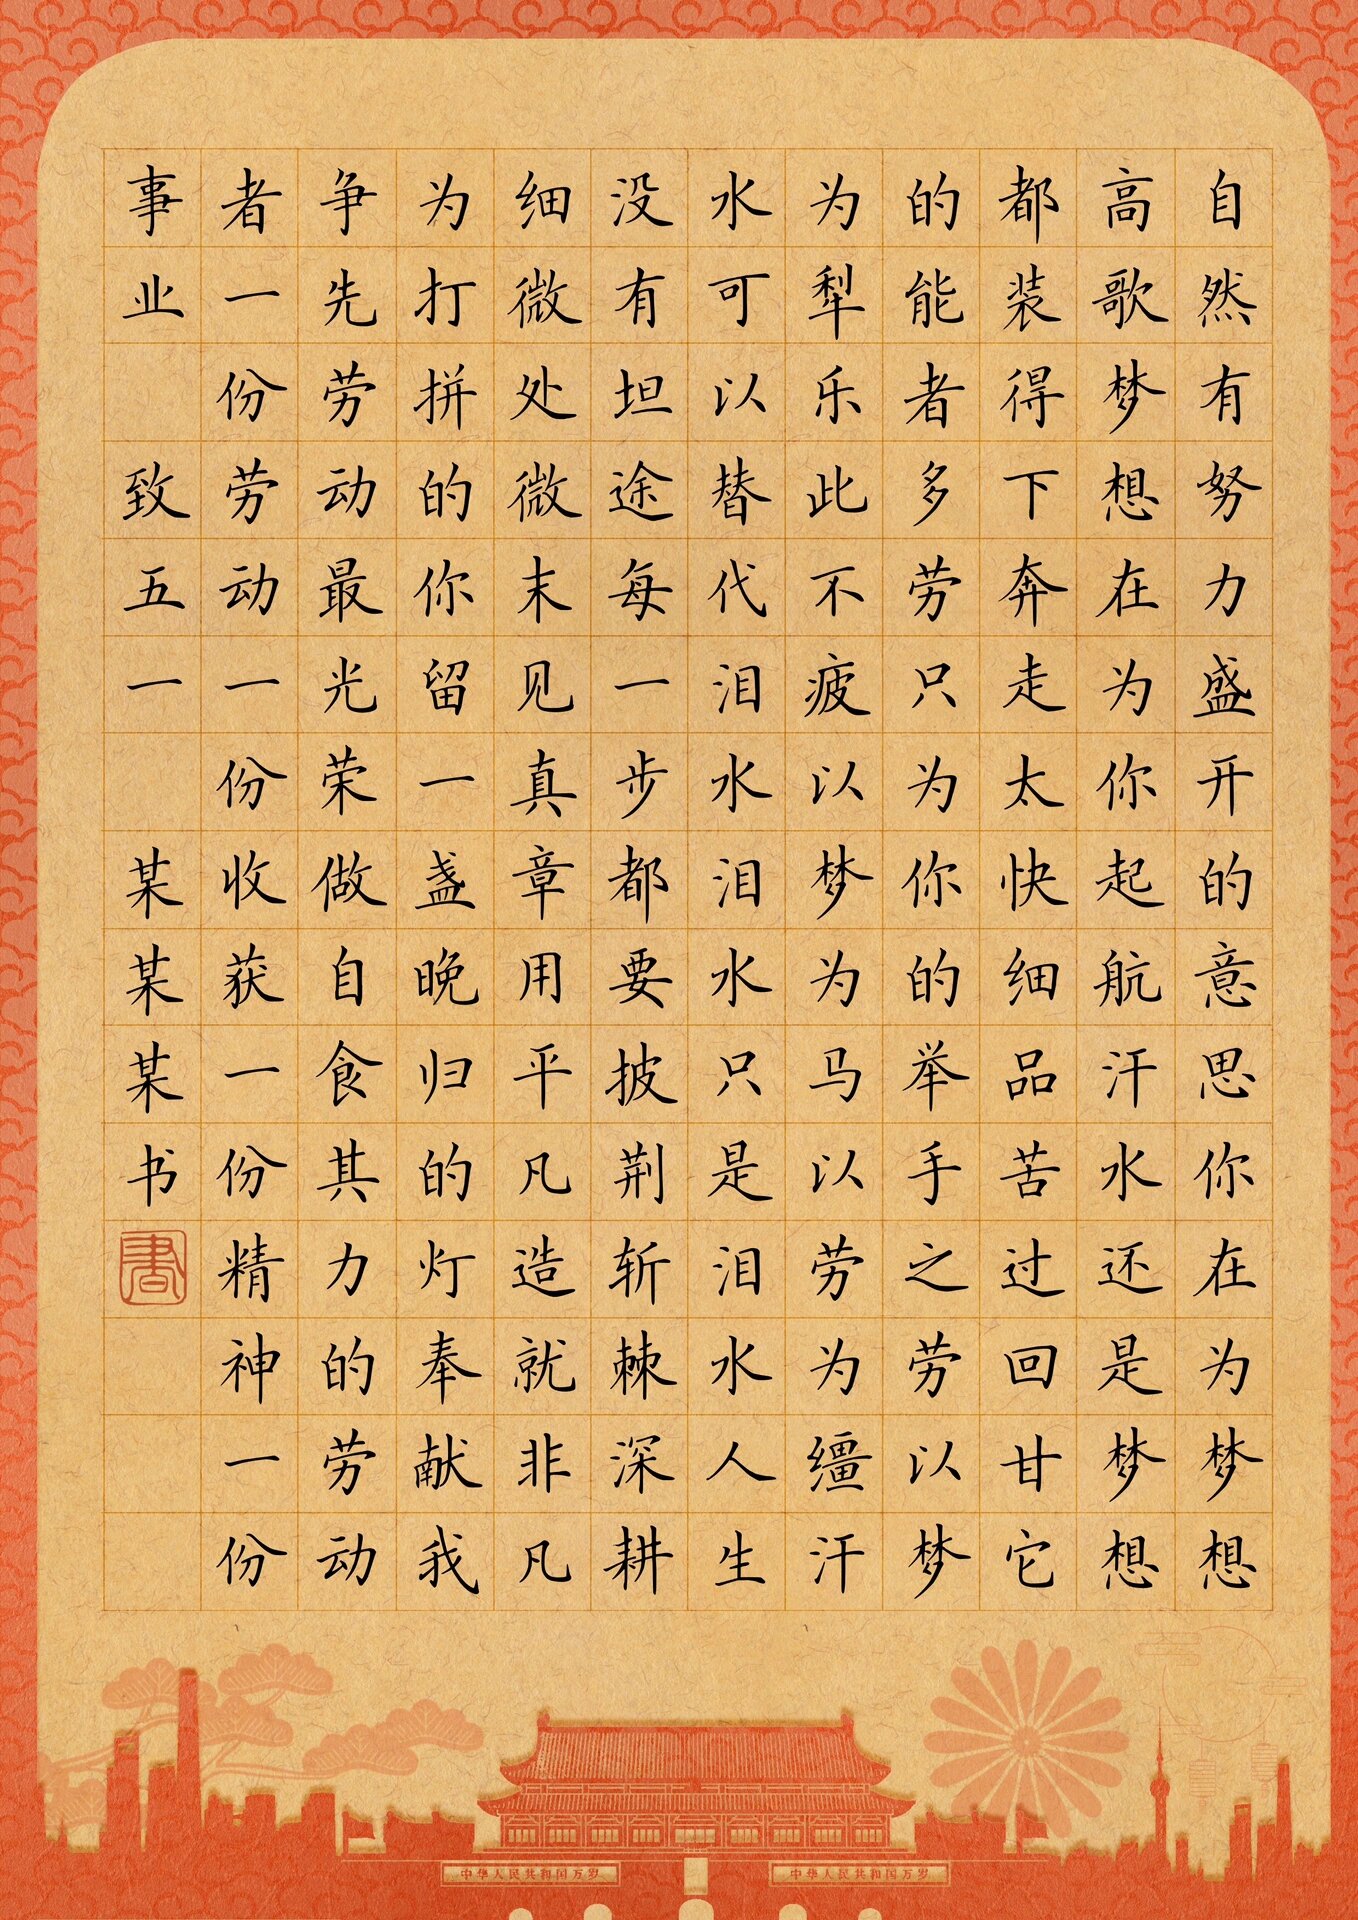 自然有努力盛开的意思你在为梦想
高歌梦想在为你起航汗水还是梦想
都装得下奔走太快细品苦过回甘它
的能者多劳只为你的举手之劳以梦
为犁乐此不疲以梦为马以劳为缰汗
水可以替代泪水泪水只是泪水人生
没有坦途每一步都要披荆斩棘深耕
细微处微末见真章用平凡造就非凡
为打拼的你留一盏晚归的灯奉献我
争先劳动最光荣做自食其力的劳动
者一份劳动一份收获一份精神一份
事业 致五一 某某某书
書
中华人民共和国万岁
中华人民共和国万岁